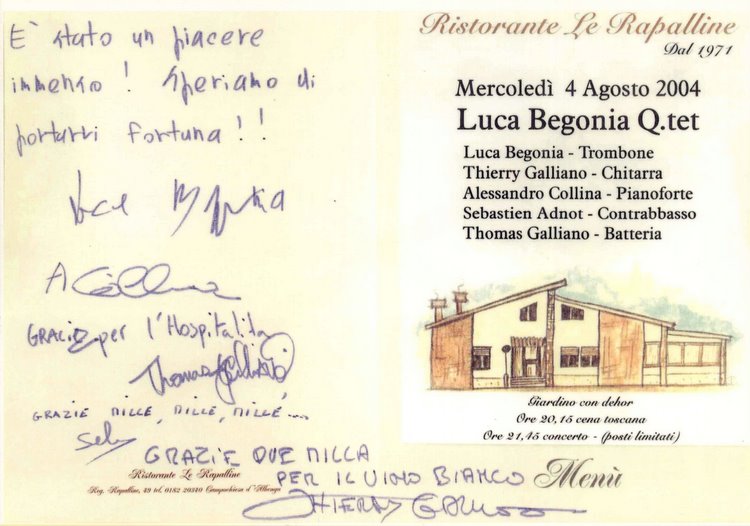 È stato un piacere
immenso! Speriamo di
portarvi fortuna!!
Luca Begonia
A Collina
GRAZIE per l'Hospitalita
Thomas Galliano
GRAZIE MILLE, MILLE, MILLE...
Seb
GRAZIE DUE MILLA
PER IL VINO BIANCO
THIERRY GALLIANO
Ristorante Le Rapalline
Reg. Rapalline, 49 tel. 0182 20340 Campochiesa d'Albenga
Ristorante Le Rapalline
Dal 1971
Mercoledì 4 Agosto 2004
Luca Begonia Q.tet
Luca Begonia - Trombone
Thierry Galliano - Chitarra
Alessandro Collina - Pianoforte
Sebastien Adnot - Contrabbasso
Thomas Galliano - Batteria
Giardino con dehor
Ore 20,15 cena toscana
Ore 21,45 concerto - (posti limitati)
Menù